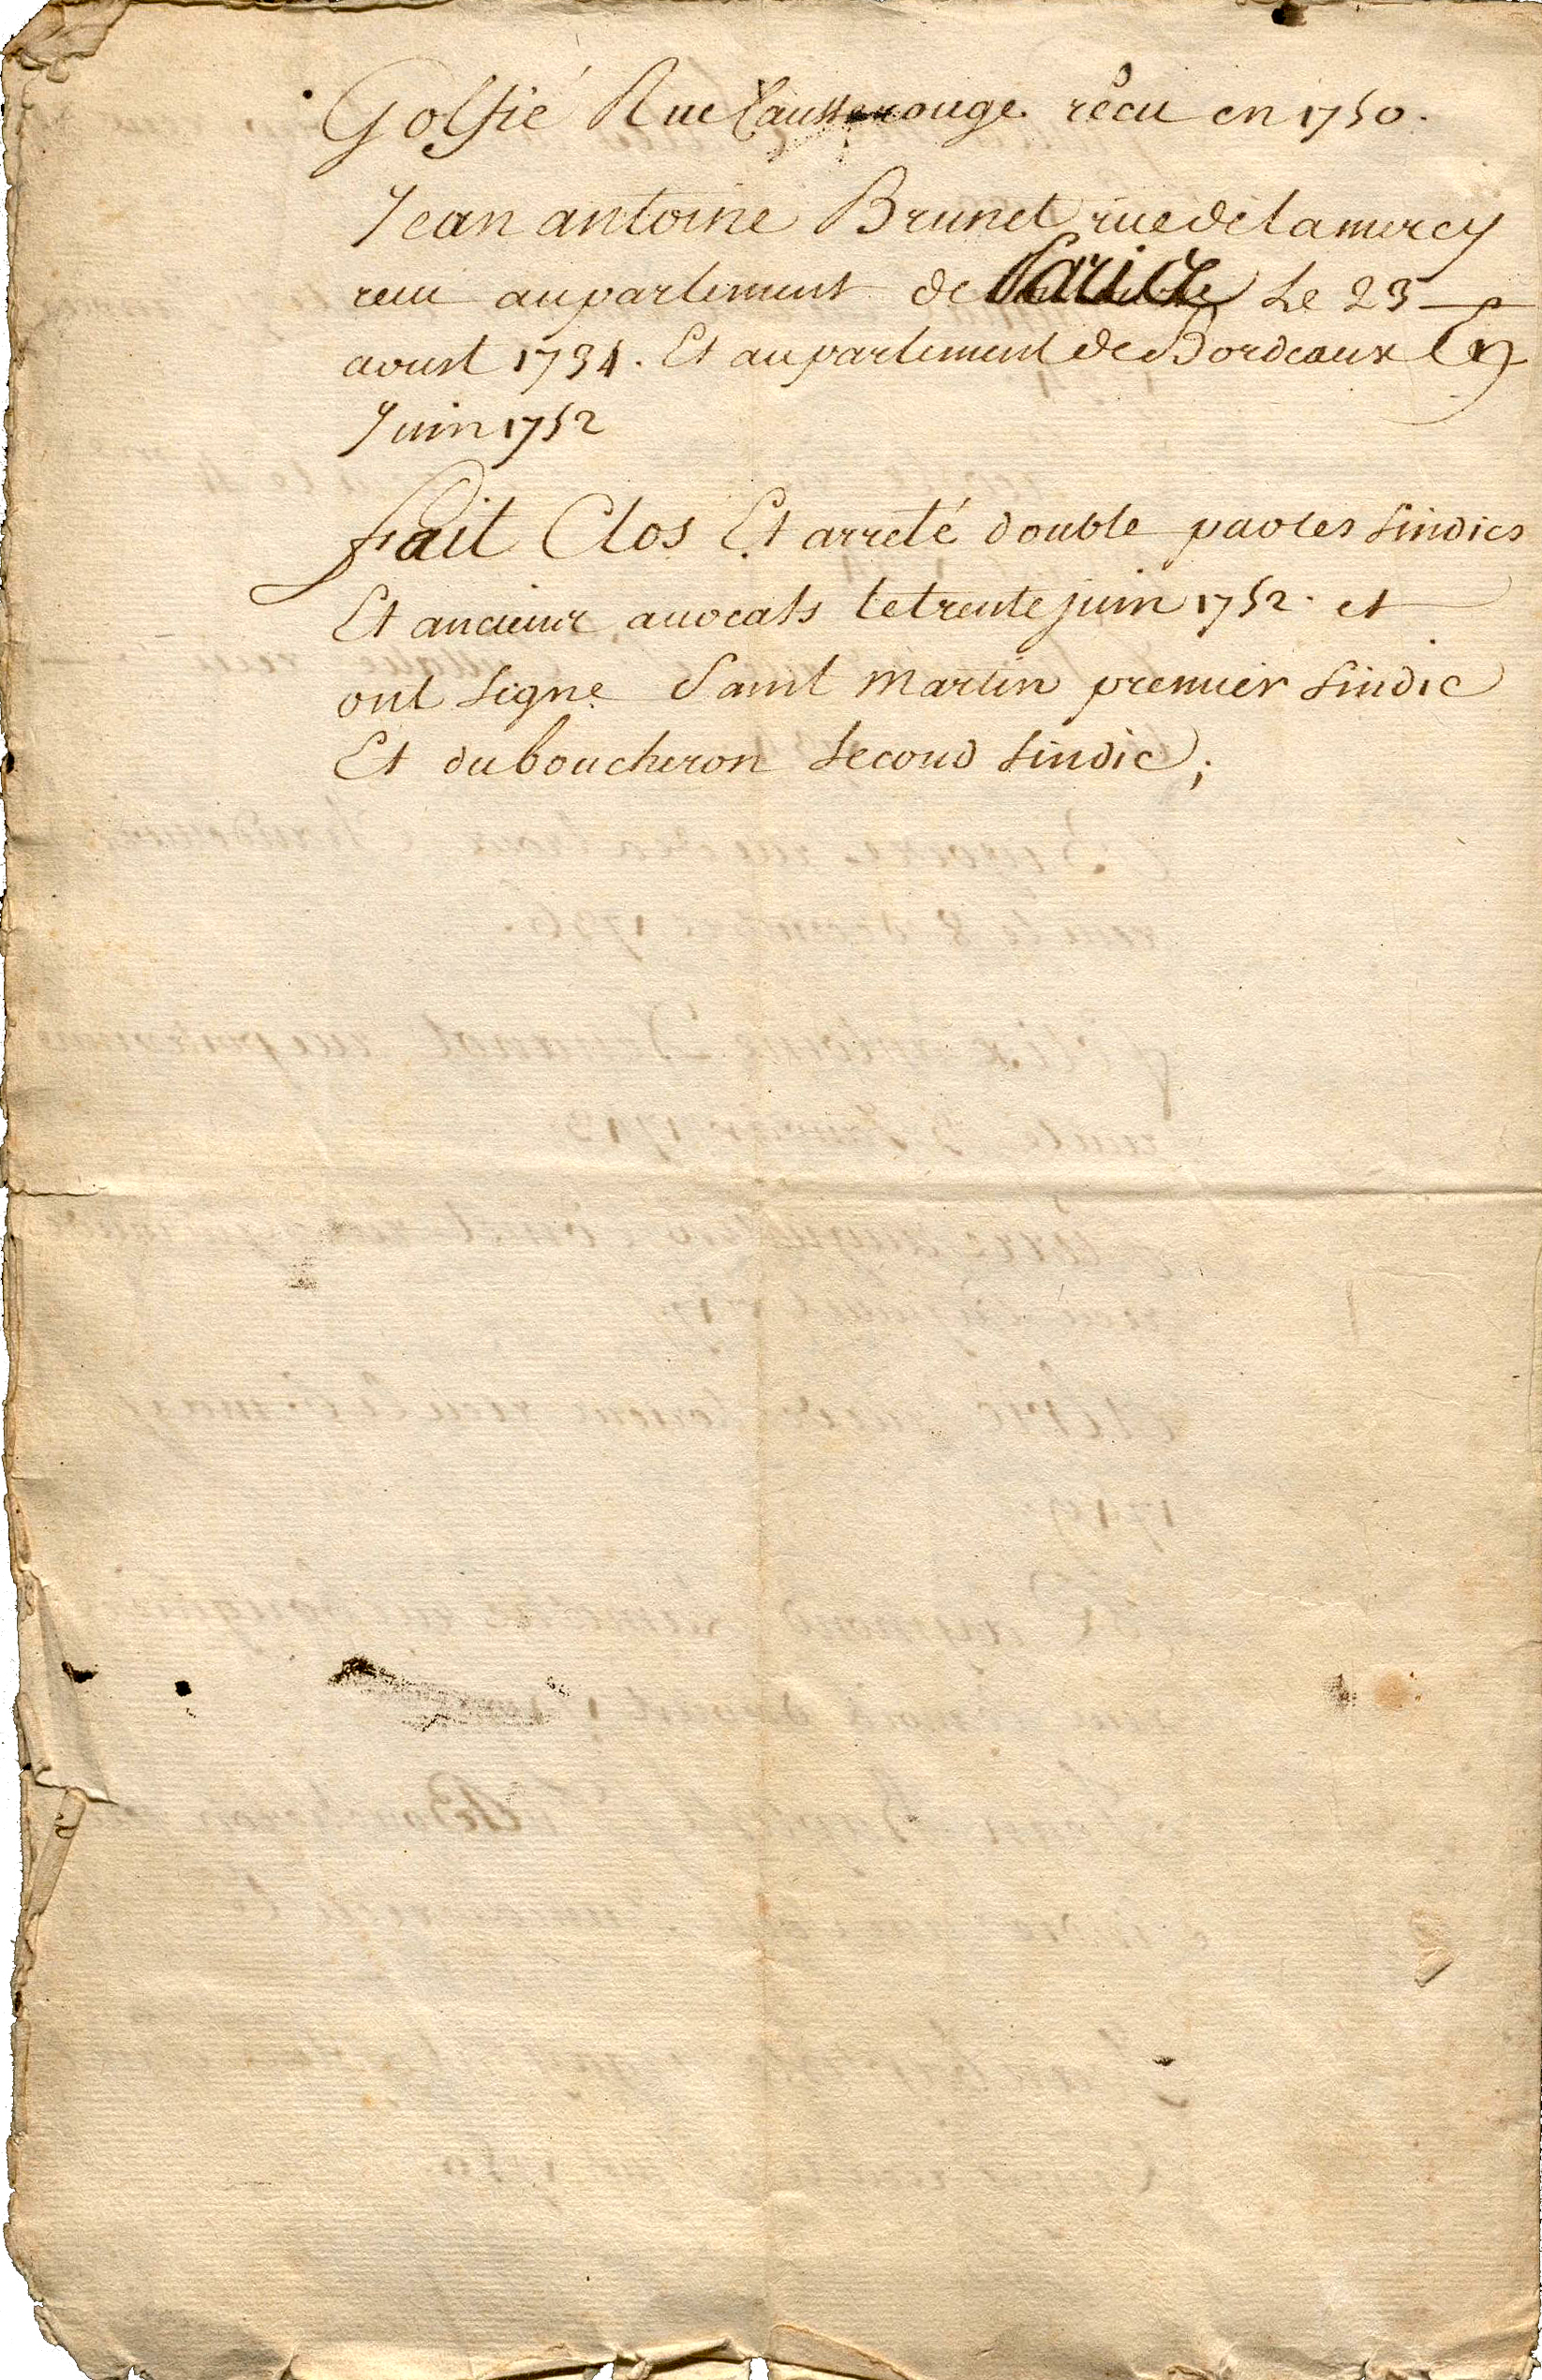 Golfié Rue Causserouge recu en 1750.
Jean antoine Brunet rue de la mercy
recu au parlement de Paris Le 23
aoust 1734. Et au parlement de Bordeaux Le
Juin 1752
fait Clos Et arreté double par les sindics
Et anciens avocats le trente juin 1752. et
ont signe Saint martin premier sindic
Et duboucheron second sindic;